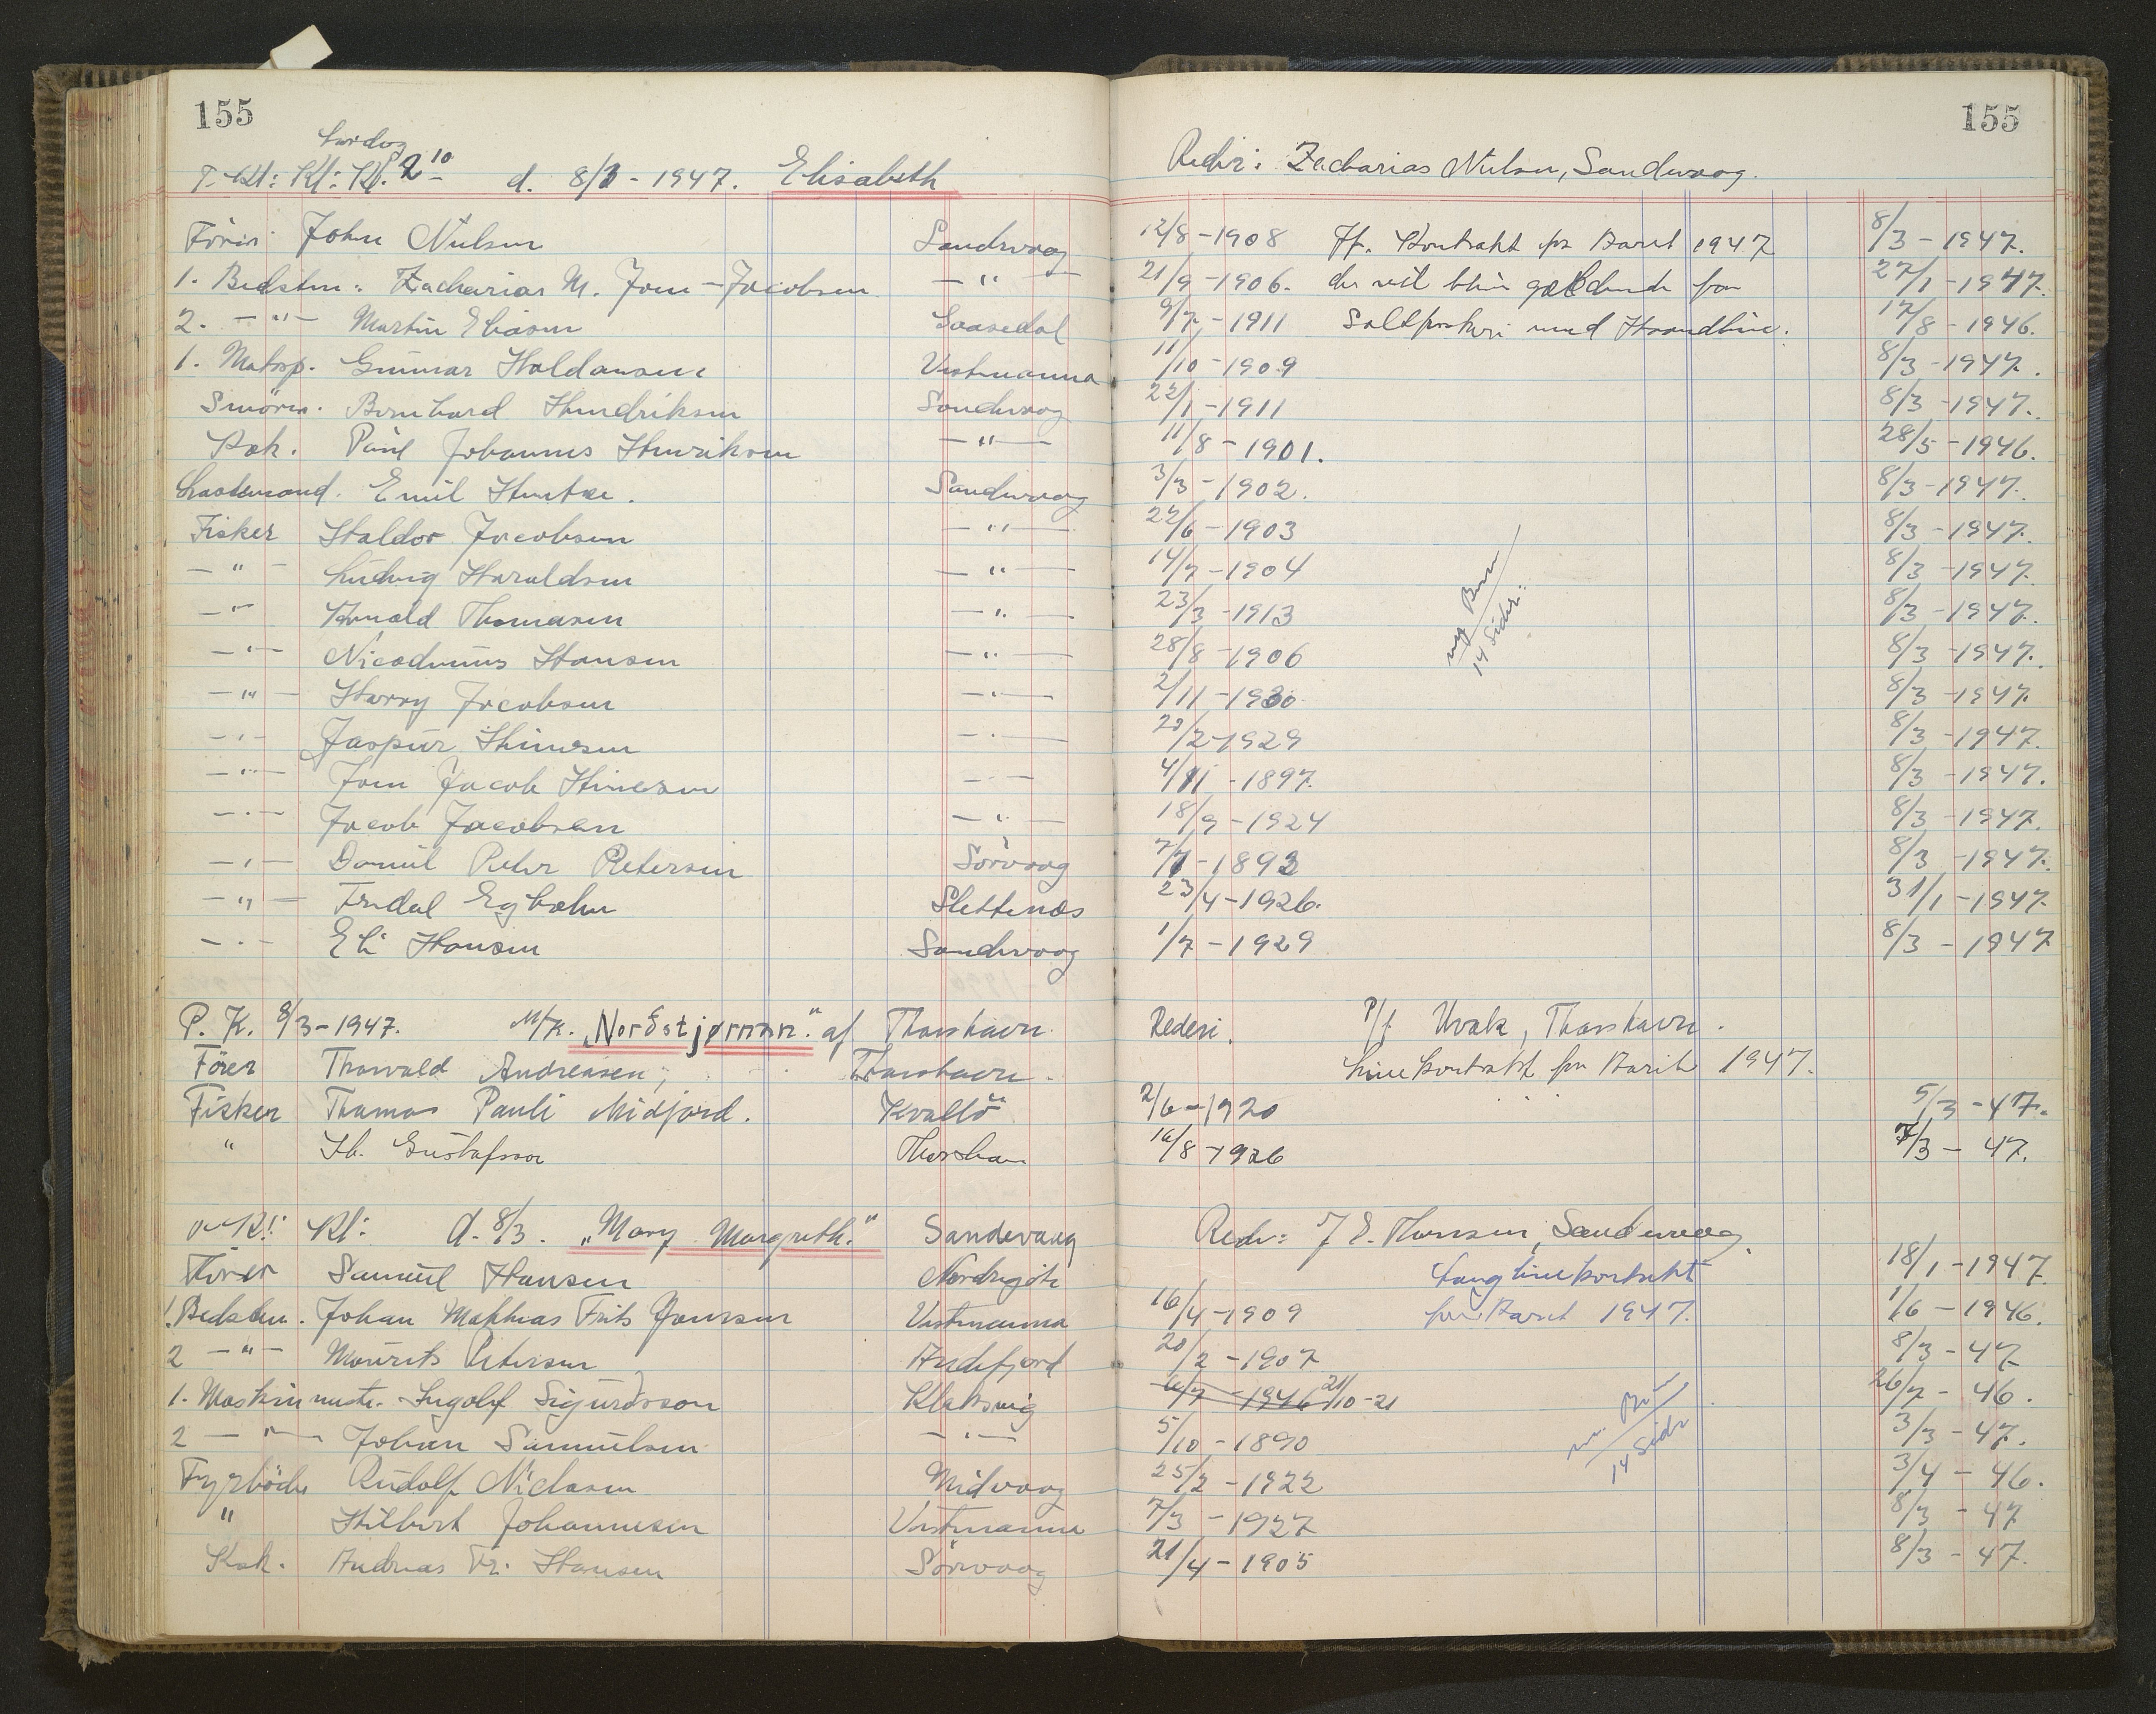 155
155
Lørdag
T. Kl: Kl: Kl. 2 10 d. 8/3 - 1947. Elisabeth Reder: Zacharias Nielsen, Sandevaag.
Förer John Nielsen Sandevaag 12/8 - 1908 Ff. Kontrakt for Aaret 1947 8/3 - 1947.
1. Bedstm: Zacharias M. Joen - Jacobsen — " — 21/9 - 1906. der vil blive gældende for 27/1 - 1947.
2. — " — Martin Eliasen Gaasedal 9/7 - 1911 Saltfiskeri med Haandline. 17/8 - 1946.
1. Motorp. Gunnar Haldansen Vestmanna 11/10 - 1909 8/3 - 1947.
Smörer. Bernhard Hendriksen Sandevaag 22/1 - 1911 8/3 - 1947.
Kok. Paul Johannes Henriksen — " — 11/8 - 1901. 28/5 - 1946.
Lastemand. Emil Hentze. Sandevaag 3/3 - 1902. 8/3 - 1947.
Fisker Haldor Jacobsen — " — 22/6 - 1903 8/3 - 1947.
— " — Ludvig Haraldsen — " — 14/7 - 1904 8/3 - 1947.
— " — Arnold Thomasen — " — 23/3 - 1913 8/3 - 1947.
— " — Nicodemus Hansen — " — 28/8 - 1906 8/3 - 1947.
— " — Harry Jacobsen — " — 2/11 - 1930 8/3 - 1947.
— " — Jaspur Simesen — " — 20/2 - 1929 8/3 - 1947.
— " — Joen Jacob Simesen — " — 4/11 - 1897. 8/3 - 1947.
— " — Jacob Jacobsen — " — 18/9 - 1924 8/3 - 1947.
— " — Daniel Peter Petersen Sörvaag 7/7 - 1893 8/3 - 1947.
— " — Fredal Egholm Slettenæs 23/4 - 1926. 31/1 - 1947.
— " — Eli Hansen Sandevaag 1/7 - 1929 8/3 - 1947
14 Sider.
P. K. 8/3 - 1947. M/K. „Norðstjørnan." af Thorshavn. Rederi. P/f Hvak, Thorshavn.
Förer Thorvald Andreasen, Thorshavn. Linekontrakt for Aaret 1947.
Fisker Thomas Pauli Midjord. Kvalbö 2/6 - 1920 5/3 - 47.
" H. Gustafsson Thorshavn 16/8 - 1926 7/3 - 47.
Kl: d. 8/3. „Mary Margreth." Sandevaag Reder: J E. Thomsen, Sandevaag.
Förer Samuel Hansen Nordregöte Langlinekontrakt 18/1 - 1947.
1. Bedstm. Johan Mathias Frits Joensen Vestmanna 16/4 - 1909 for Aaret 1947. 1/6 - 1946.
2 — " — Mourits Petersen Andefjord 20/2 - 1907 8/3 - 47.
1. Maskinmester. Ingolf Sigurdsson Klaksvig 6/7 - 1946 21/10 - 21 26/7 - 46.
2 — " — Johan Samuelsen — " — 5/10 - 1890 3/3 - 47.
Fyrböder Rudolf Niclasen Midvaag 25/2 - 1922 3/4 - 46.
" Hilbert Johannesen Vestmanna 7/3 - 1927 8/3 - 47
Kok. Andreas Fr. Hansen Sörvaag 21/4 - 1905 8/3 - 47.
14 Sider